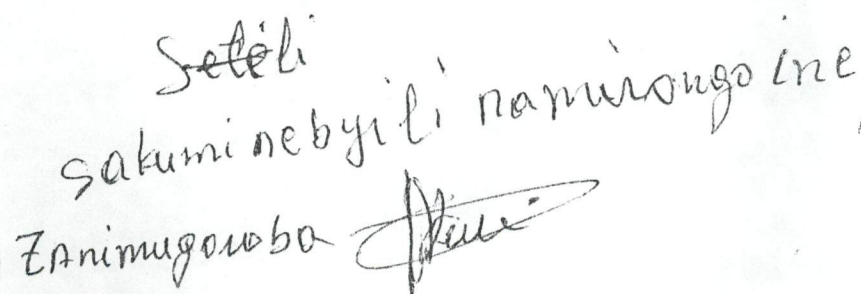 Setéli
sakumi nebyili namirongo ine
zanimugoroba